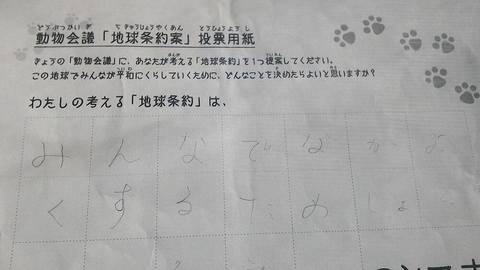 動物会議「地球条約案」投票用紙
きょうの「動物会議」に、あなたが考える「地球条約」を1つ提案してください。
この地球でみんなが平和にくらしていくために、どんなことを決めたらよいと思いますか?
わたしの考える「地球条約」は、
みんなでなかよ
くするためしょ